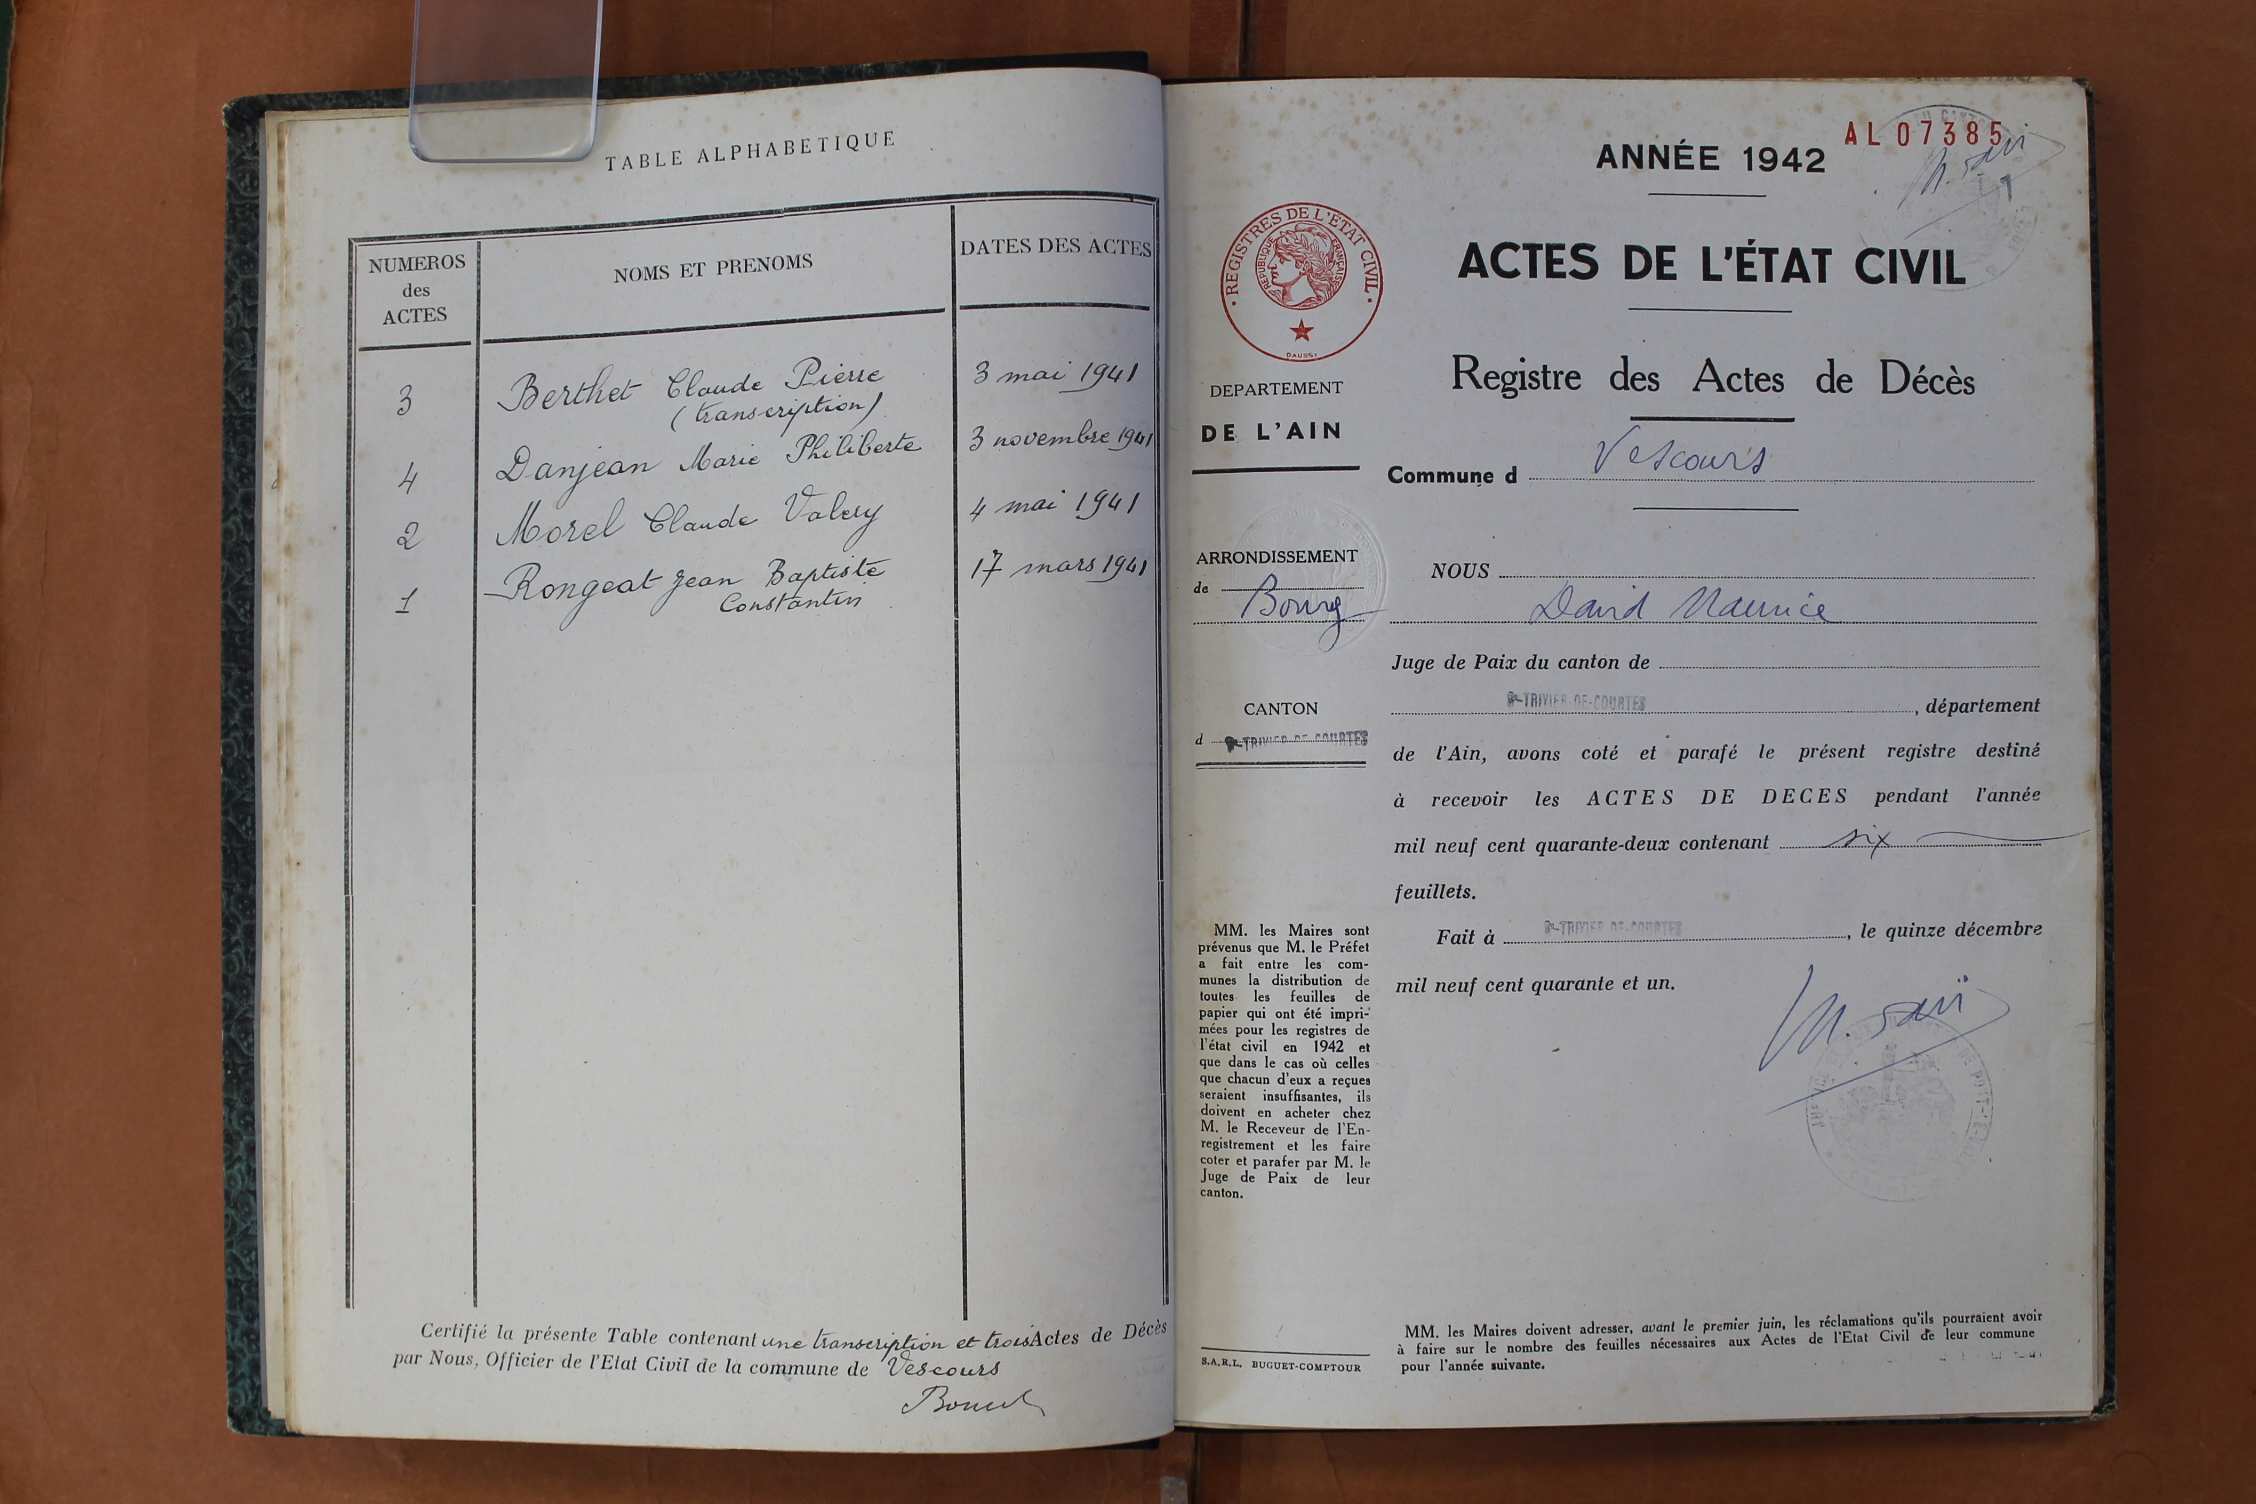 TABLE ALPHABETIQUE
NUMEROS
des
ACTES
NOMS ET PRENOMS
DATES DES ACTES
3 Berthet Claude Pierre 3 mai 1941
(transcription)
4 Danjean Marie Philiberte 3 novembre 1941
2 Morel Claude Valery 4 mai 1941
1 Rongeat Jean Baptiste 17 mars 1941
Constantin
Certifié la présente Table contenant une transcription et trois Actes de Décès
par Nous, Officier de l'Etat Civil de la commune de Vescours
AL 07385
ANNÉE 1942
REGISTRES DE L'ÉTAT CIVIL
RÉPUBLIQUE FRANÇAISE
DAUSSY
ACTES DE L'ÉTAT CIVIL
Registre des Actes de Décès
DEPARTEMENT
DE L'AIN
Commune d Vescours
ARRONDISSEMENT
de Bourg
CANTON
d St-TRIVIER-DE-COURTES
NOUS
David Maurice
Juge de Paix du canton de
St-TRIVIER-DE-COURTES, département
de l'Ain, avons coté et parafé le présent registre destiné
à recevoir les ACTES DE DECES pendant l'année
mil neuf cent quarante-deux contenant six
feuillets.
Fait à St-TRIVIER-DE-COURTES, le quinze décembre
mil neuf cent quarante et un.
MM. les Maires sont
prévenus que M. le Préfet
a fait entre les com-
munes la distribution de
toutes les feuilles de
papier qui ont été impri-
mées pour les registres de
l'état civil en 1942 et
que dans le cas où celles
que chacun d'eux a reçues
seraient insuffisantes, ils
doivent en acheter chez
M. le Receveur de l'En-
registrement et les faire
coter et parafer par M. le
Juge de Paix de leur
canton.
S.A.R.L. BUGUET-COMPTOUR
MM. les Maires doivent adresser, avant le premier juin, les réclamations qu'ils pourraient avoir
à faire sur le nombre des feuilles nécessaires aux Actes de l'Etat Civil de leur commune
pour l'année suivante.